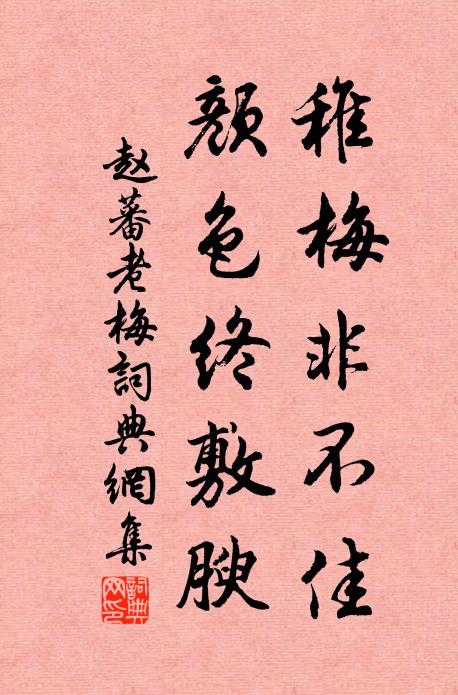 稚梅非不佳
颜色终敷腴
赵蕃老梅詞典網集
詞典網印